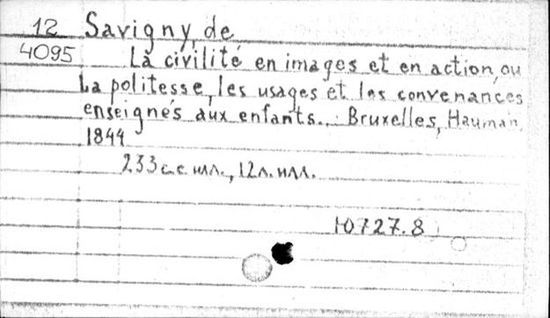 12 Savigny, de
4095 La civilité en images et en action, ou
la politesse, les usages et les convenances
enseignés aux enfants... Bruxelles, Hauman,
1844
233 с. с илл., 12 л. илл.
10727.8